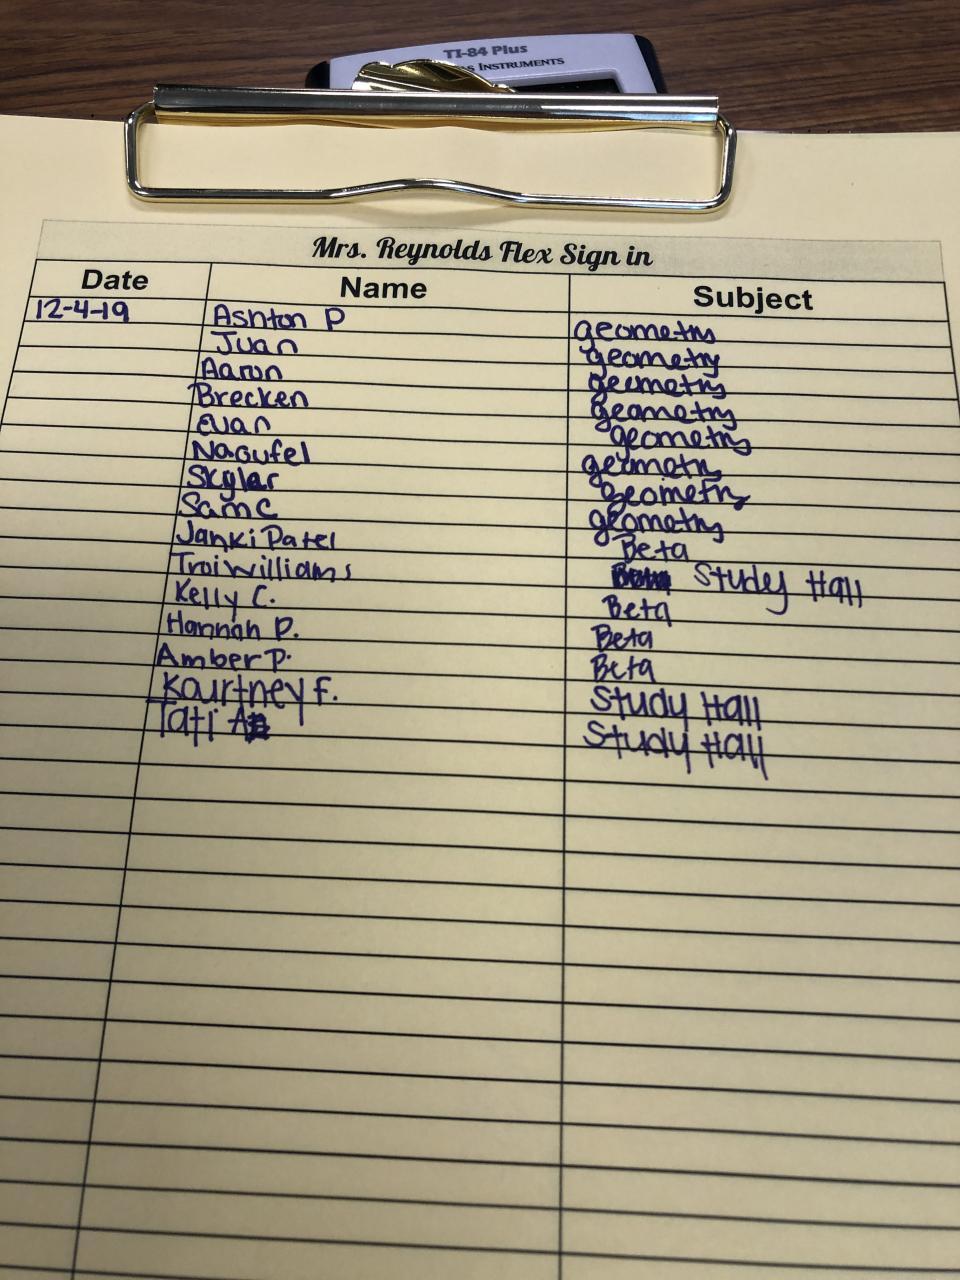 TI-84 Plus
INSTRUMENTS
Mrs. Reynolds Flex Sign in
Date Name Subject
12-4-19 Ashton P geometry
Juan geometry
Aaron geometry
Brecken geometry
Evan geometry
Naoufel geometry
Skylar geometry
Sam C geometry
Janki Patel Beta
Troi Williams Study Hall
Kelly C. Beta
Hannah P. Beta
Amber P. Beta
Kourtney F. Study Hall
Tati A Study Hall